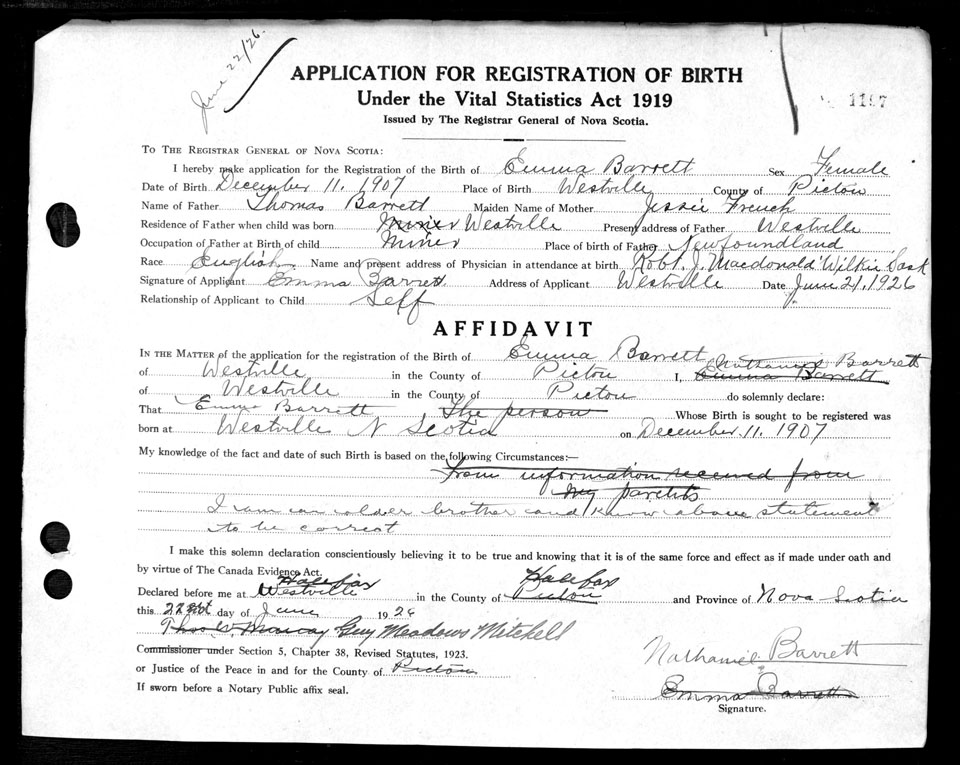 June 22/26.
APPLICATION FOR REGISTRATION OF BIRTH
Under the Vital Statistics Act 1919
1197
Issued by The Registrar General of Nova Scotia.
To The Registrar General of Nova Scotia:
I hereby make application for the Registration of the Birth of Emma Barrett Sex Female
Date of Birth December 11. 1907 Place of Birth Westville County of Pictou
Name of Father Thomas Barrett Maiden Name of Mother Jessie French
Residence of Father when child was born Miner Westville Present address of Father Westville
Occupation of Father at Birth of child Miner Place of birth of Father Newfoundland
Race English Name and present address of Physician in attendance at birth Robt. J. Macdonald Wilkie Sask
Signature of Applicant Emma Barrett Address of Applicant Westville Date June 21, 1926
Relationship of Applicant to Child Self
AFFIDAVIT
In the Matter of the application for the registration of the Birth of Emma Barrett Nathaniel Barrett
of Westville in the County of Pictou I, Emma Barrett
of Westville in the County of Pictou do solemnly declare:
That Emma Barrett The person Whose Birth is sought to be registered was
born at Westville N Scotia on December. 11. 1907
My knowledge of the fact and date of such Birth is based on the following Circumstances:—
From information received from
my parents
I am an older brother and know above statement
to be correct
I make this solemn declaration conscientiously believing it to be true and knowing that it is of the same force and effect as if made under oath and
by virtue of The Canada Evidence Act.
Halifax Halifax
Declared before me at Westville in the County of Pictou and Province of Nova Scotia
this 22 day of June 1926
Guy Meadows Mitchell
Commissioner under Section 5, Chapter 38, Revised Statutes, 1923.
Nathaniel Barrett
or Justice of the Peace in and for the County of Pictou
If sworn before a Notary Public affix seal.
Emma Barrett
Signature.